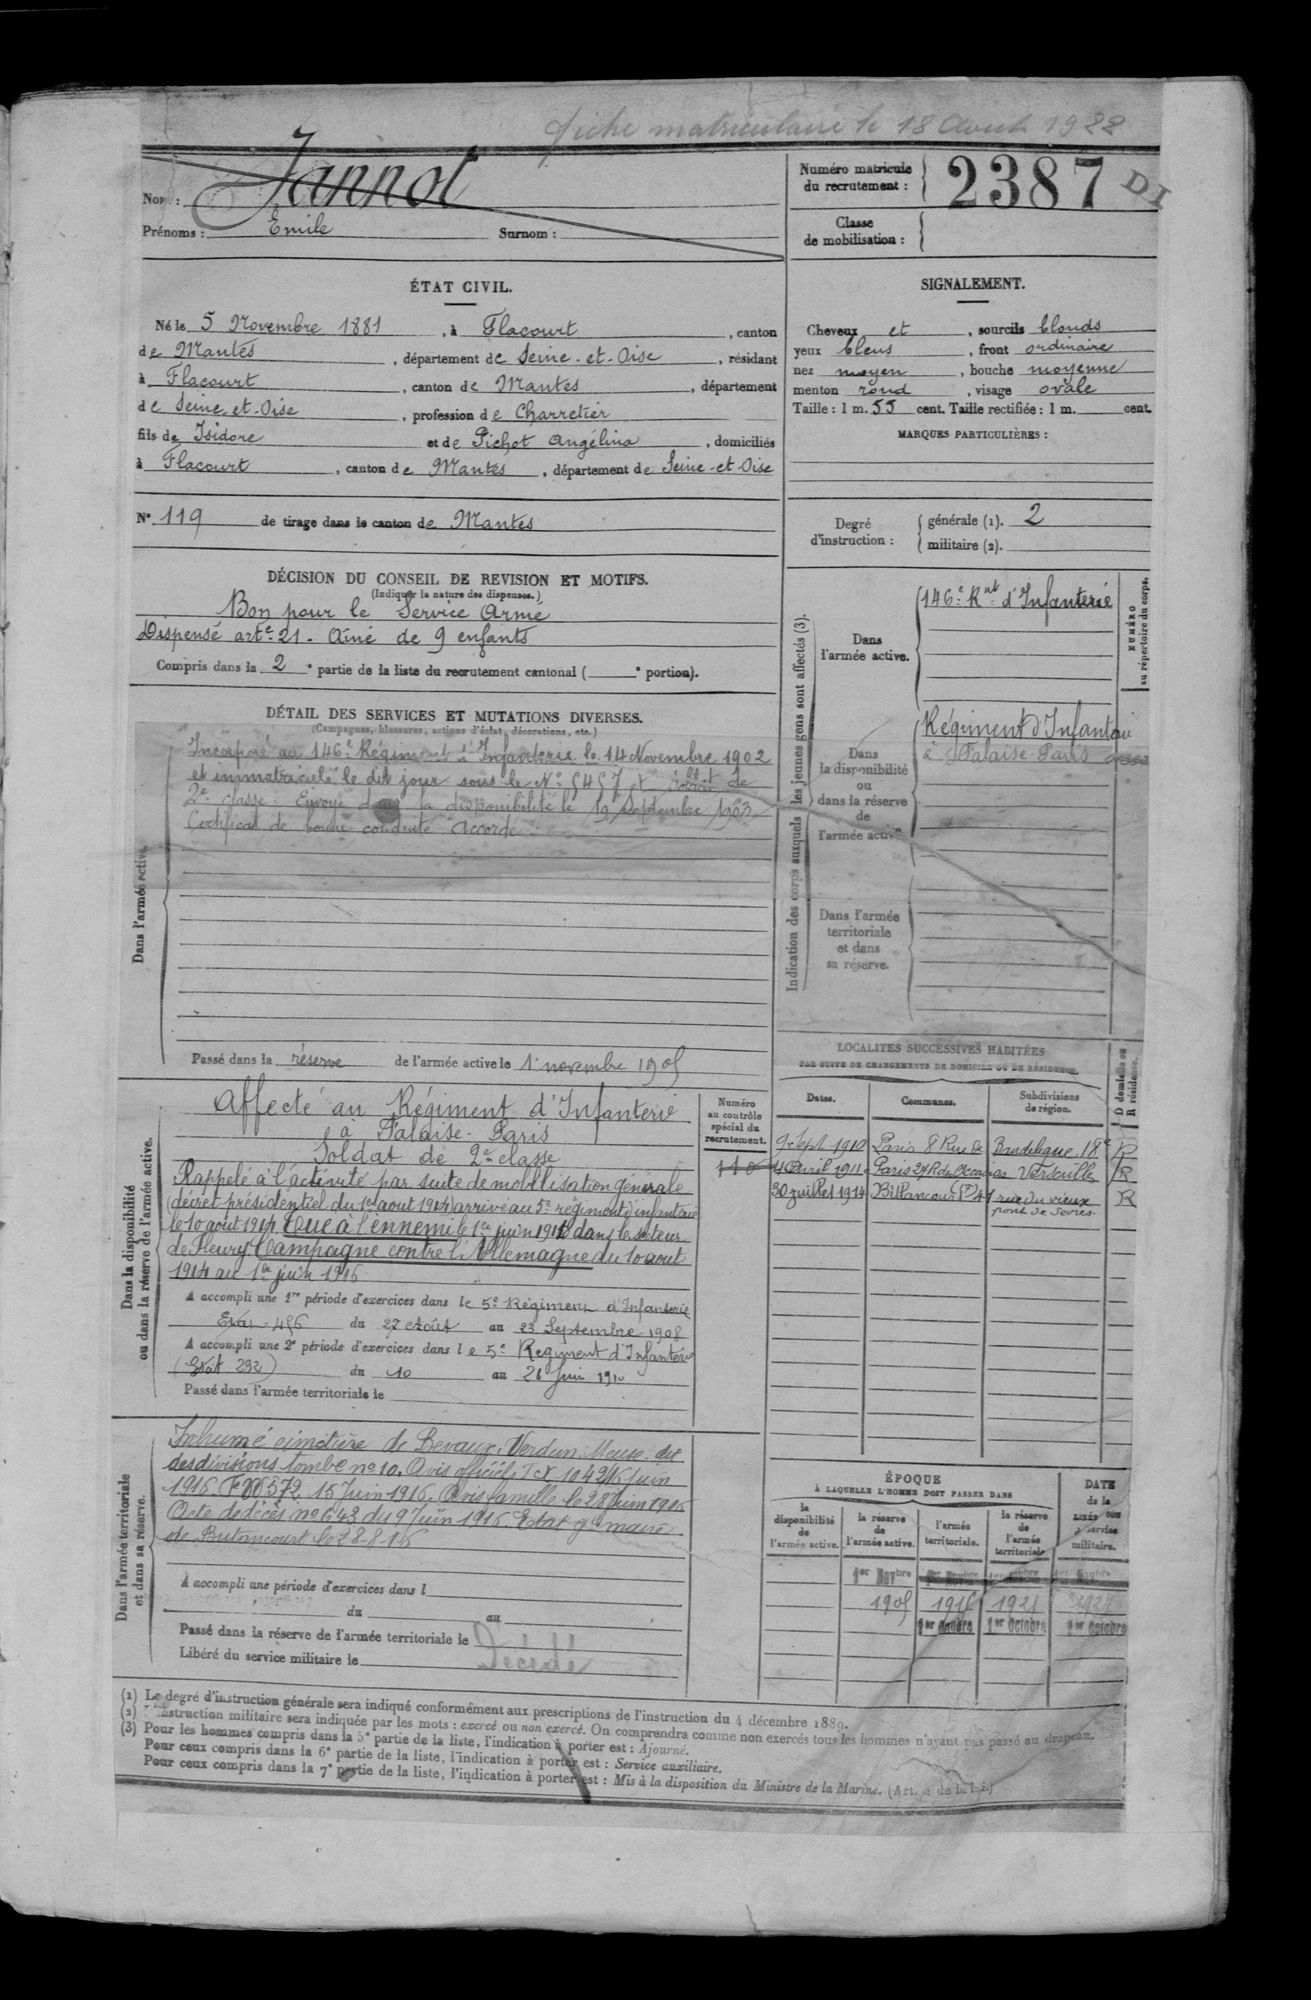 fiche matriculaire le 18 Août 1922
Nom : Jannot
Prénoms : Emile Surnom :
Numéro matricule du recrutement : 2387 DI
Classe de mobilisation :
ÉTAT CIVIL.
Né le 5 Novembre 1881, à Flacourt, canton
de Mantes, département de Seine-et-Oise, résidant
à Flacourt, canton de Mantes, département
de Seine et-Oise, profession de Charretier
fils de Isidore et de Pichot Angélina, domiciliés
à Flacourt, canton de Mantes, département de Seine-et-Oise
N° 119 de tirage dans le canton de Mantes
SIGNALEMENT.
Cheveux et, sourcils blonds
yeux bleus, front ordinaire
nez moyen, bouche moyenne
menton rond, visage ovale
Taille : 1 m. 55 cent. Taille rectifiée : 1 m. cent.
MARQUES PARTICULIÈRES :
Degré d'instruction : générale (1). 2
militaire (2).
DÉCISION DU CONSEIL DE REVISION ET MOTIFS.
(Indiquer la nature des dispenses.)
Bon pour le Service Armé
Dispensé art.e 21. Ainé de 9 enfants
Compris dans la 2e partie de la liste du recrutement cantonal ( e portion).
Indication des corps auxquels les jeunes gens sont affectés (3).
Dans l'armée active.
146.e R.nt d'Infanterie
NUMÉRO au répertoire du corps.
Dans la disponibilité ou dans la réserve de l'armée active
Régiment d'Infanterie
à Falaise-Paris
Dans l'armée territoriale et dans sa réserve.
DÉTAIL DES SERVICES ET MUTATIONS DIVERSES.
(Campagnes, blessures, actions d'éclat, décorations, etc.)
Dans l'armée active.
Incorporé au 146.e Régiment d'Infanterie le 14 Novembre 1902
et immatriculé le dit jour sous le N° 5457 et soldat de
2e classe. Envoyé dans la disponibilité le 19 Septembre 1903.
Certificat de bonne conduite Accordé
Passé dans la réserve de l'armée active le 1er novembre 1905
Dans la disponibilité ou dans la réserve de l'armée active.
Affecté au Régiment d'Infanterie
à Falaise-Paris
Soldat de 2e classe
Rappelé à l'activité par suite de mobilisation générale
(décret présidentiel du 1er aout 1914) arrivé au 5e régiment d'infanterie
le 10 août 1914. Tué à l'ennemi le 1er juin 1916 dans le secteur
de Fleury. Campagne contre l'Allemagne du 10 aout
1914 au 1er juin 1916
A accompli une 1re période d'exercices dans le 5e Régiment d'Infanterie
du 27 Août au 23 Septembre 1908
A accompli une 2e période d'exercices dans le 5e Régiment d'Infanterie
(Etat 292) du 10 au 26 Juin 1910
Passé dans l'armée territoriale le
Numéro au contrôle spécial du recrutement.
110
LOCALITÉS SUCCESSIVES HABITÉES
PAR SUITE DE CHANGEMENTS DE DOMICILE OU DE RÉSIDENCE.
Dates. Communes. Subdivisions de région. D domicile ou R résidence.
9 Sept 1910 Paris 8 Rue de Baudelique 18e R
4 Avril 1911 Paris 27 R des Versailles R
30 juillet 1914 Billancourt 41 rue du vieux pont de Sèvres R
Dans l'armée territoriale et dans sa réserve.
Inhumé cimetière de Bevaux. Verdun. Meuse. dit
des divisions tombe no 10. Avis officiel Juin
1916 FW 572 15 Juin 1916. Avis famille le 28 Juin 1916
Acte de décès no 643 du 9 Juin 1916 Etat mairie
de Billancourt le 28-8-16
A accompli une période d'exercices dans l
du au
Passé dans la réserve de l'armée territoriale le
Libéré du service militaire le
Décédé
ÉPOQUE
À LAQUELLE L'HOMME DOIT PASSER DANS
la disponibilité de l'armée active. la réserve de l'armée active. l'armée territoriale. la réserve de l'armée territoriale
DATE de la LIBÉRATION du service militaire.
1er Novbre 1er Novbre 1er Novbre 1er Novbre
1905 1915 1921 1927
1er Octobre 1er Octobre 1er Octobre
(1) Le degré d'instruction générale sera indiqué conformément aux prescriptions de l'instruction du 4 décembre 1889.
(2) L'instruction militaire sera indiquée par les mots : exercé ou non exercé. On comprendra comme non exercés tous les hommes n'ayant pas passé au drapeau.
(3) Pour les hommes compris dans la 5e partie de la liste, l'indication à porter est : Ajourné.
Pour ceux compris dans la 6e partie de la liste, l'indication à porter est : Service auxiliaire.
Pour ceux compris dans la 7e partie de la liste, l'indication à porter est : Mis à la disposition du Ministre de la Marine. (Art. 4 de la loi.)